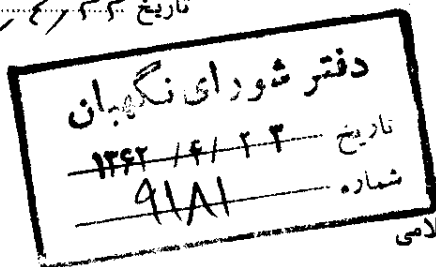 تاریخ
دفتر شورای نگهبان
تاریخ ۱۳۶۲/۴/۲۳
شماره ۹۱۸۱
لامی